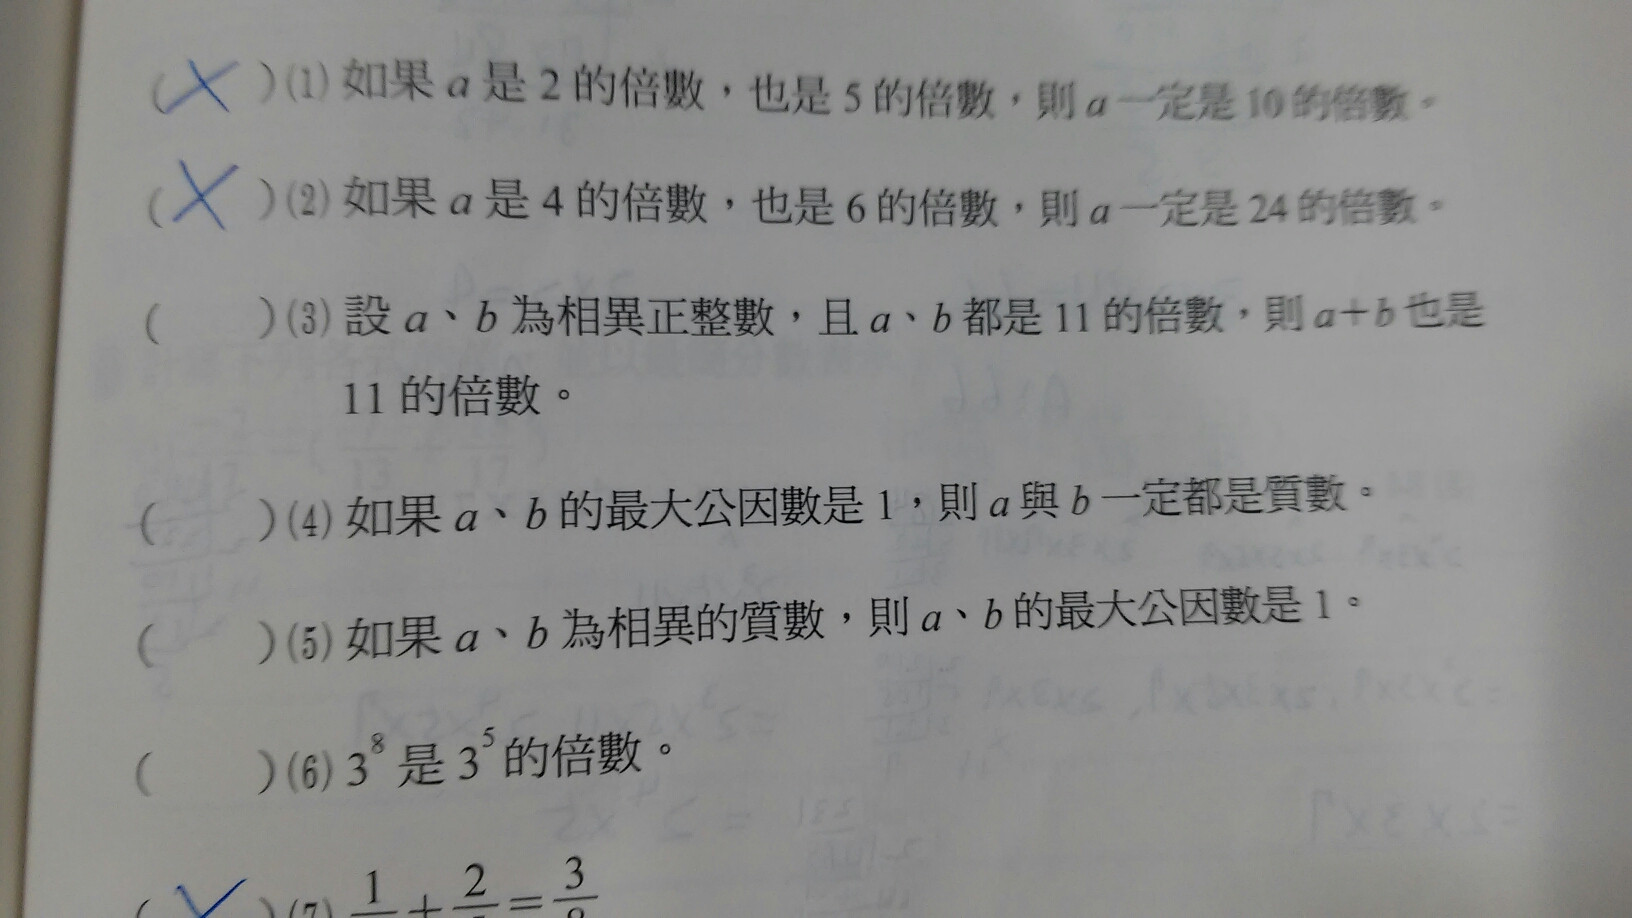 (X)(1) 如果 a 是 2 的倍數，也是 5 的倍數，則 a 一定是 10 的倍數。
(X)(2) 如果 a 是 4 的倍數，也是 6 的倍數，則 a 一定是 24 的倍數。
( )(3) 設 a、b 為相異正整數，且 a、b 都是 11 的倍數，則 a+b 也是
11 的倍數。
( )(4) 如果 a、b 的最大公因數是 1，則 a 與 b 一定都是質數。
( )(5) 如果 a、b 為相異的質數，則 a、b 的最大公因數是 1。
( )(6) 3⁸ 是 3⁵ 的倍數。
(X)(7)